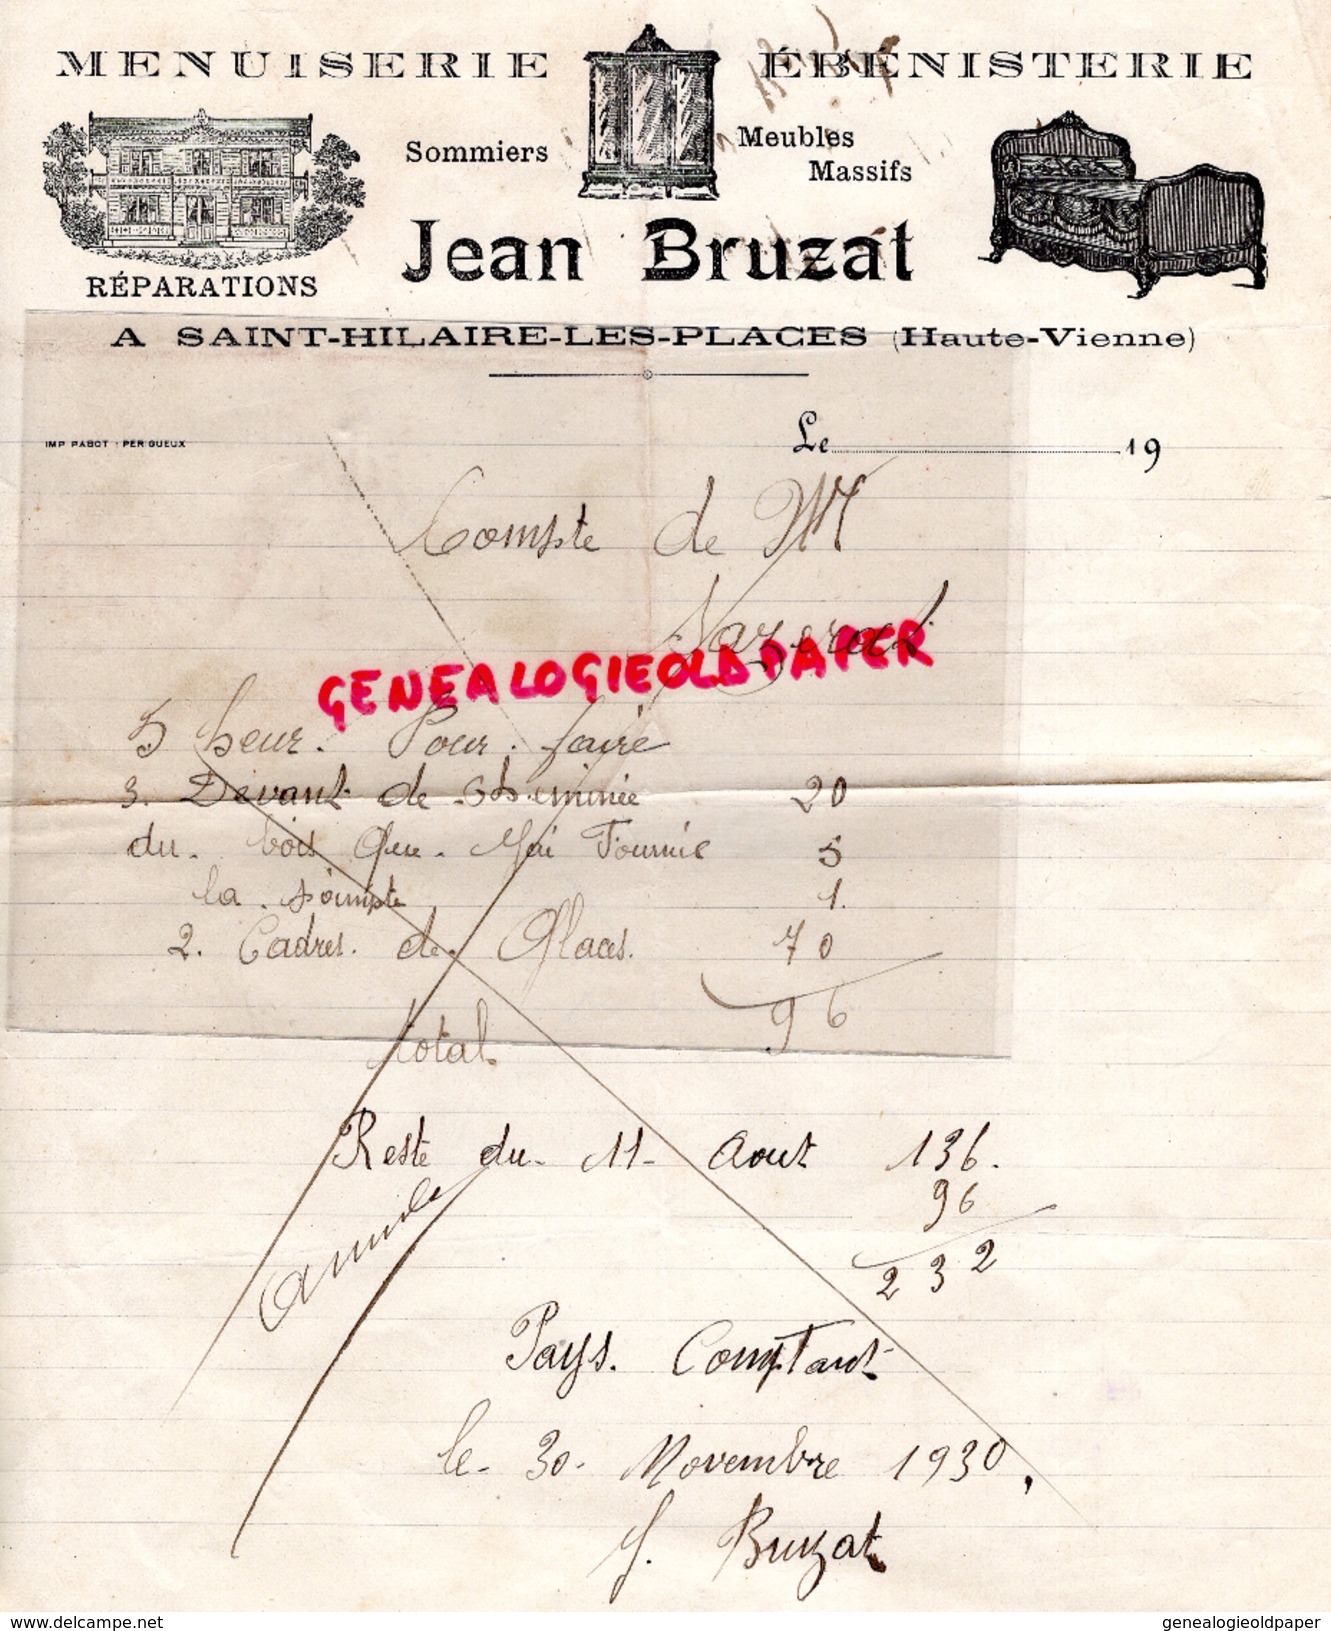 MENUISERIE ÉBÉNISTERIE
Sommiers
Meubles
Massifs
Jean Bruzat
RÉPARATIONS
A SAINT-HILAIRE-LES-PLACES (Haute-Vienne)
IMP PABOT - PERIGUEUX
Le 19
Compte de Mr
GENEALOGIEOLDPAPER
5 heur. Pour. faire
3. Devant de cheminée 20
du. bois Que. Fournie 5
la 1.
2. Cadres. de Glaces. 70
96
total
Reste du 11 Aout 136.
96
232
Pays. Comptant
le 30 Novembre 1930,
J. Bruzat
www.delcampe.net
genealogieoldpaper